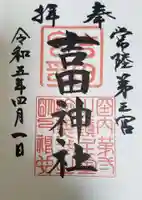 奉拝
常陸第三宮
吉田神社
令和五年四月一日